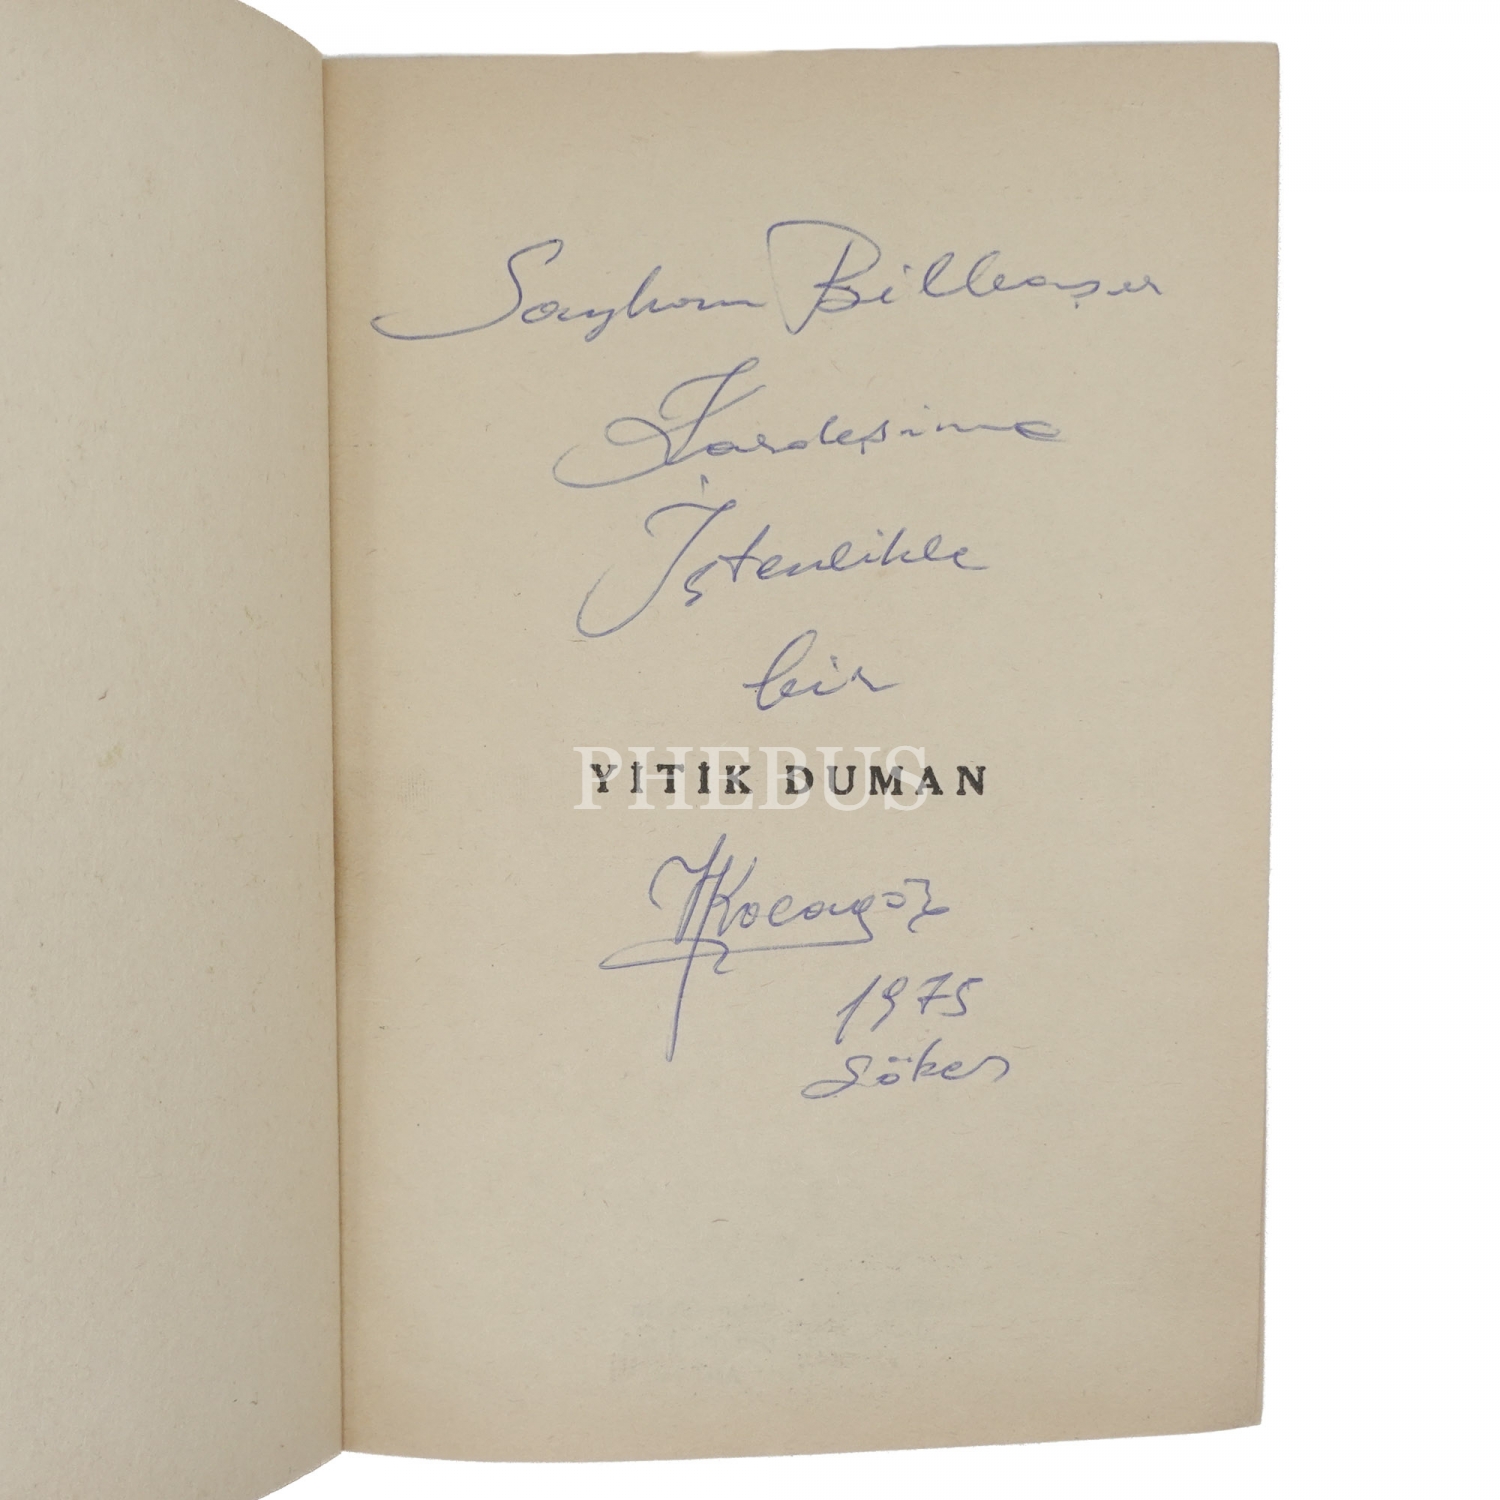 Sayhan Bilbaşar
Kardeşime
İçtenlikle
bir
PHEBUS
YİTİK DUMAN
Kocagöz
1975
Söke